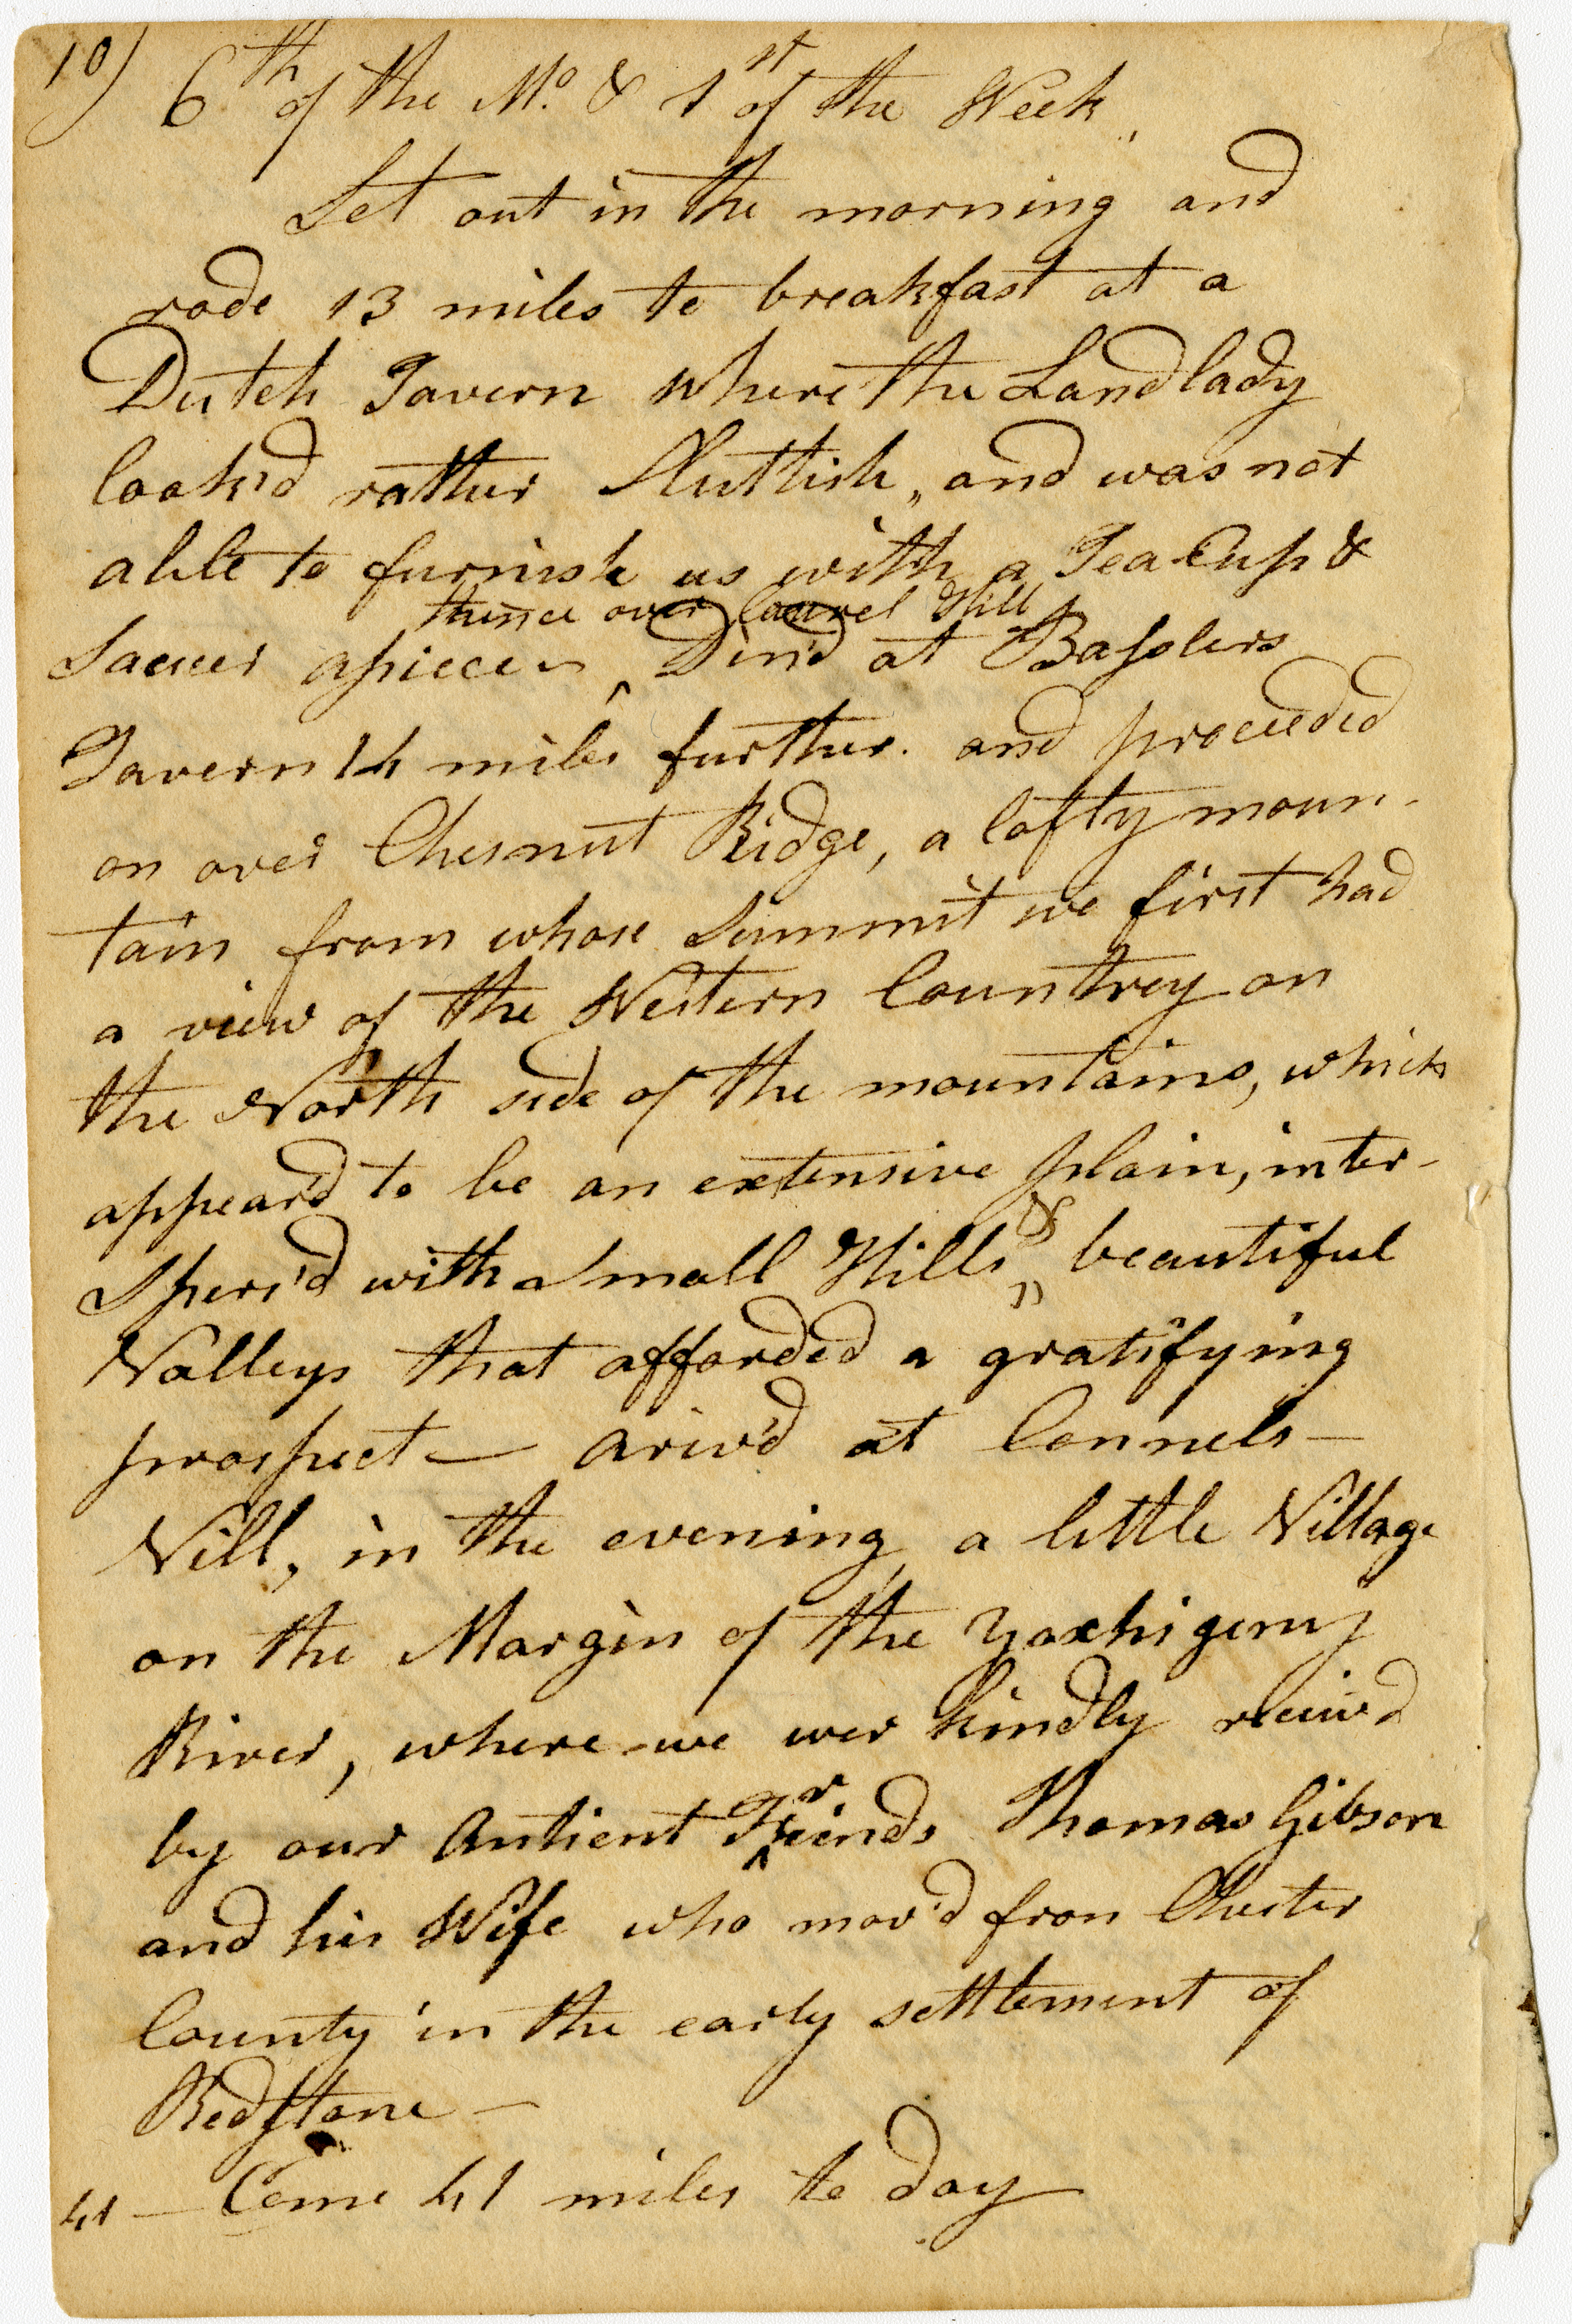 10) 6th of the Mo. & 1st of the Week,,
Set out in the morning and
rode 13 miles to breakfast at a
Dutch Tavern where the Landlady
look'd rather Sluttish,, and was not
able to furnish us with a Tea Cup &
thence over laurel Hill
Saucer apiece – ^ Din'd at Basslers
Tavern 14 miles further. and proceeded
on over Chesnut Ridge, a lofty moun-
tain from whose Summit we first had
a view of the Western Countrey on
the North side of the mountains, which
appear'd to be an extensive plain, inter-
spers'd with Small Hills,, & beautiful
Valleys that afforded a gratifying
prospect — ariv'd at Connels-
Vill, in the evening, a little Village
on the Margin of the Yoxhigeny
River, where we wer kindly receiv'd
by our Antient Friends Thomas Gibson
and his Wife who mov'd fron Chester
County in the early settlement of
Redstone —
41 — Come 41 miles to day